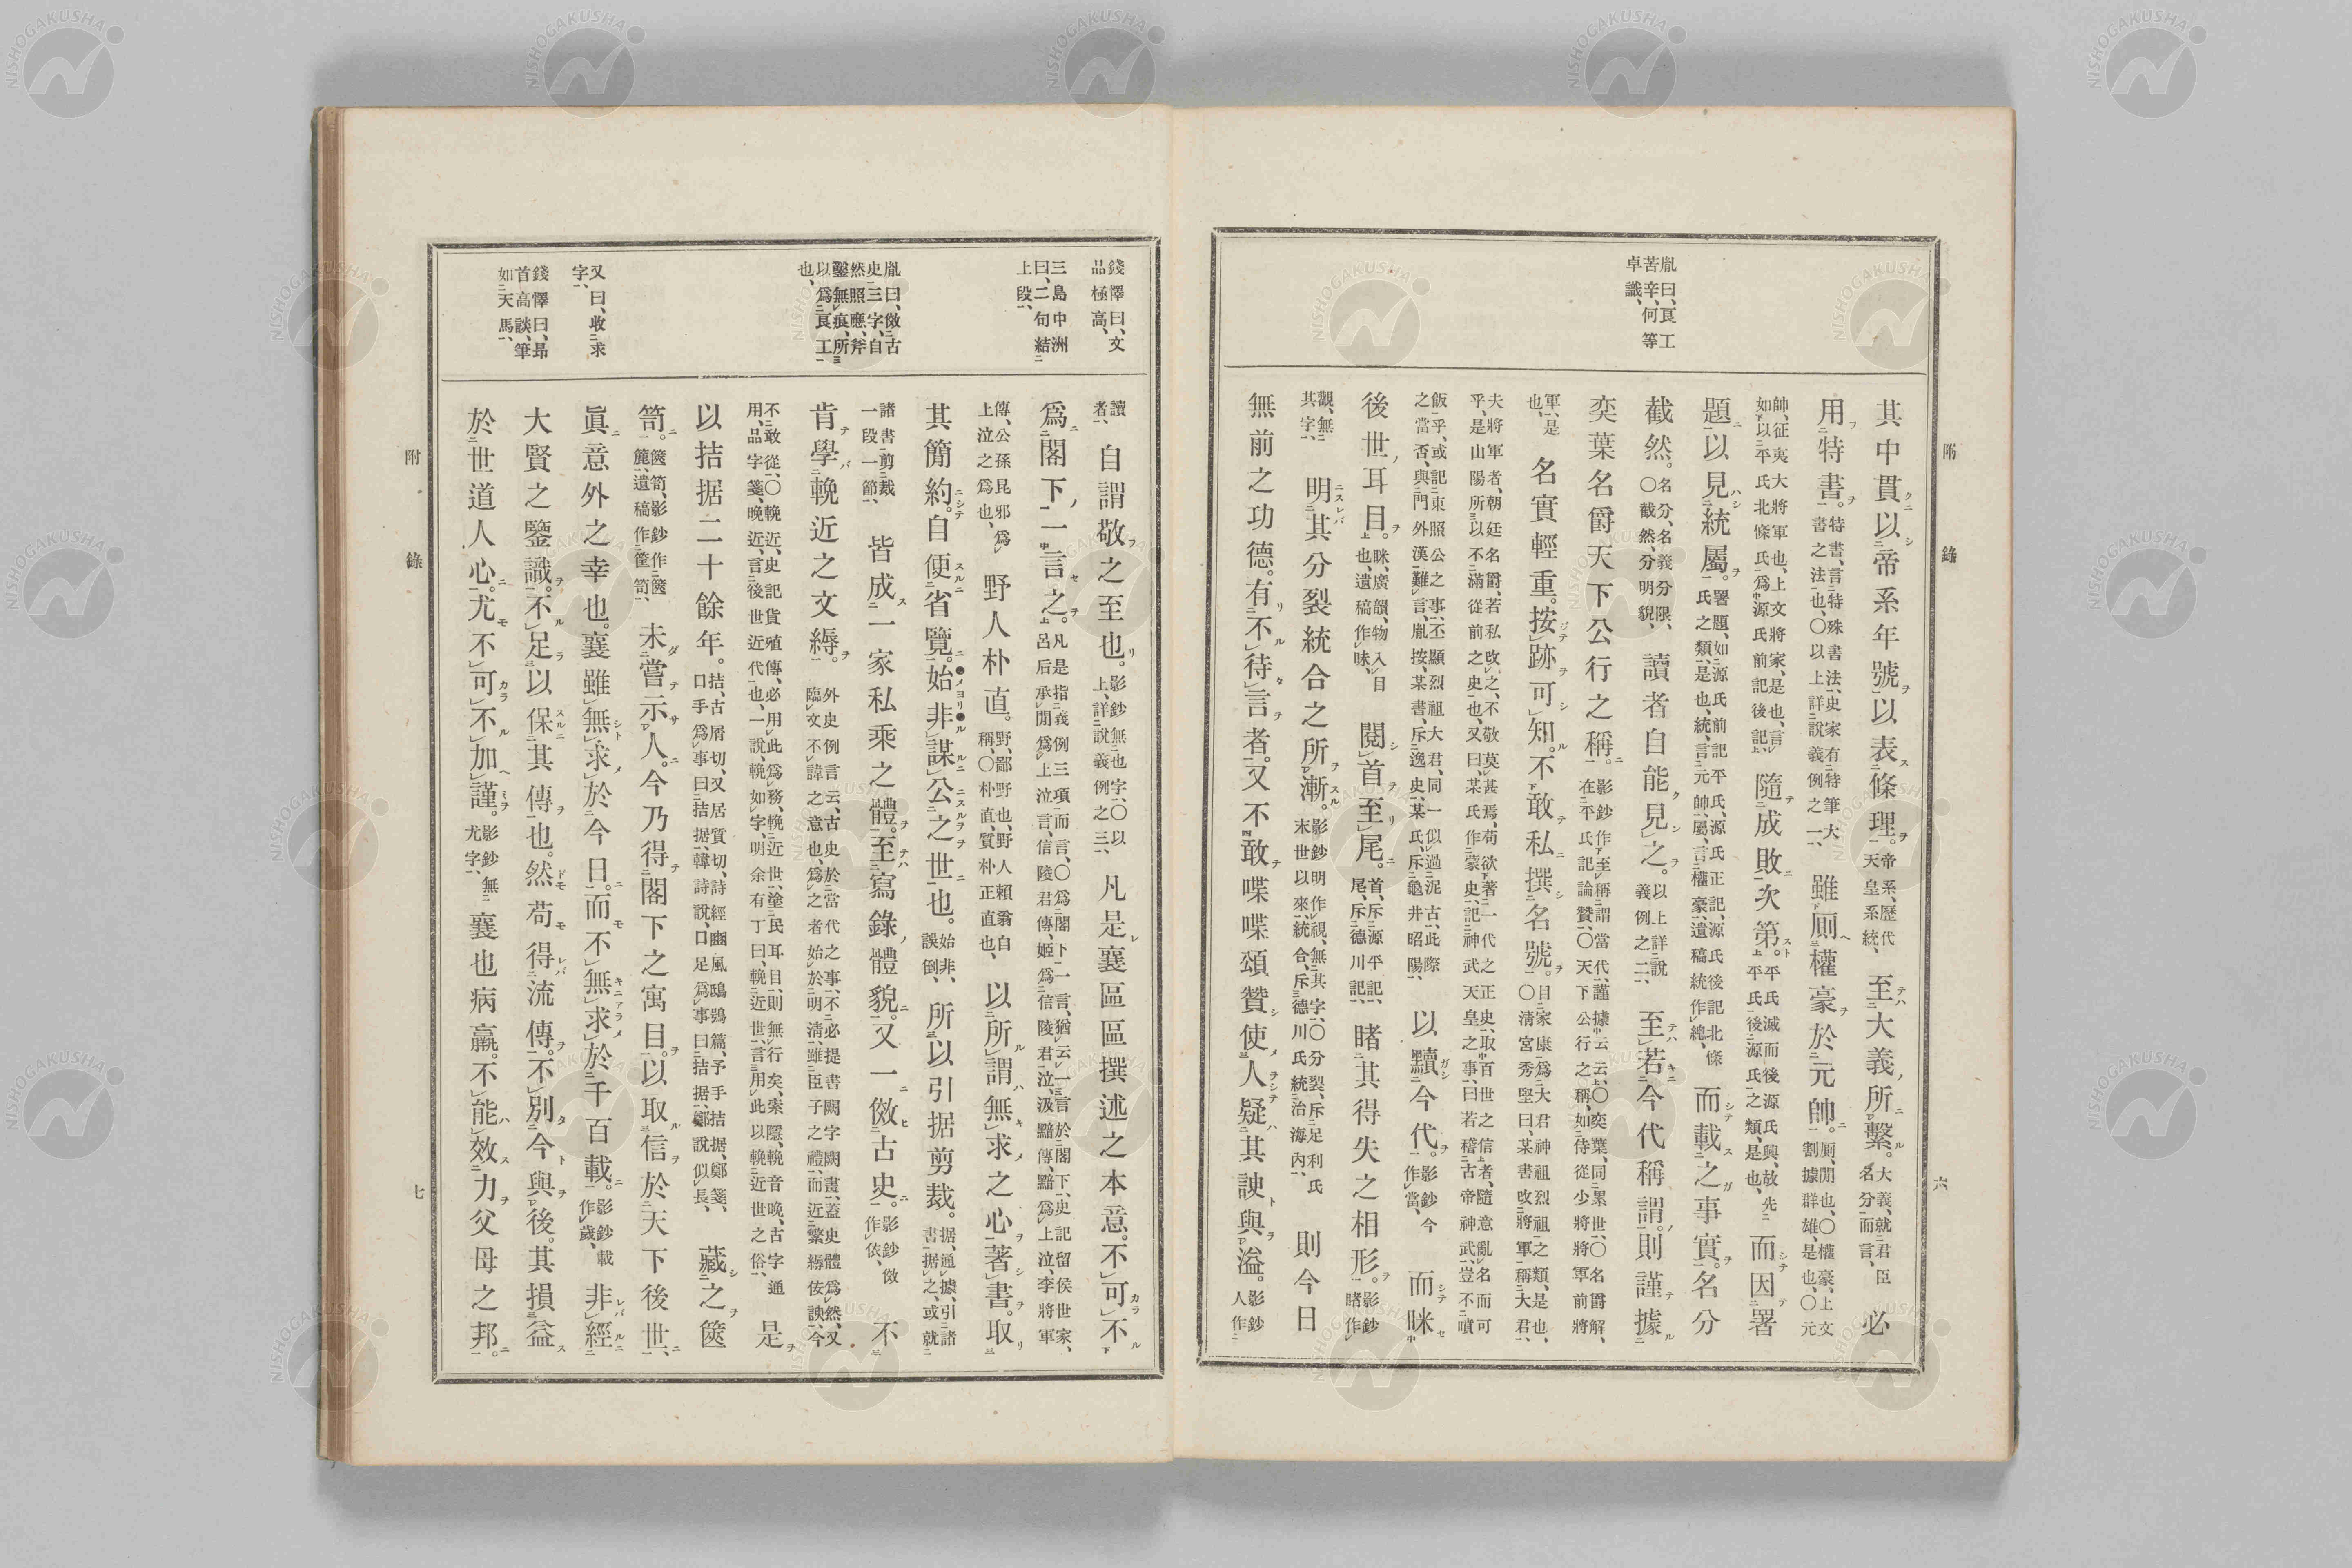 附錄 六
胤曰、良工
苦辛、何等
卓識、
其中貫以帝系年號以表條理。帝系、歷代天皇系統、至大義所繫。大義、就君臣名分而言、必
用特書。特書、言特殊書法、史家有特筆大書之法也、〇以上詳說義例之一、雖厠權豪於元帥。厠、閒也、〇權豪、上文割據群雄、是也、〇元
帥、征夷大將軍也、上文將家、是也、言如以平氏北條氏爲源氏前記後記、隨成敗次第。平氏滅而後源氏興、故先平氏後源氏之類、是也、而因署
題以見統屬。署題、如源氏前記平氏、源氏正記、源氏後記北條氏之類、是也、統、言元帥、屬、言權豪、遺稿統作總、而載之事實。名分
截然。名分、名義分限、〇截然、分明貌、讀者自能見之。以上詳說義例之二、至若今代稱謂。則謹據
奕葉名爵天下公行之稱。影鈔作至稱謂當代、謹據云云、〇奕葉、同累世、〇名爵解、在平氏記論贊、〇天下公行之稱、如侍從少將將軍前將
軍、是也、名實輕重。按跡可知。不敢私撰名號。〇目家康爲大君神祖烈祖之類、是也、淸宮秀堅曰、某書改將軍稱大君、
夫將軍者、朝廷名爵、若私改之、不敬莫甚焉、苟欲著一代之正史、取百世之信者、隨意亂名而可乎、是山陽所以不滿從前之史也、又曰、某氏作蒙史、記神武天皇之事、曰若稽古帝神武、豈不噴
飯乎、或記東照公之事、丕顯烈祖大君、同一似過泥古、此際之當否、與門外漢難言、胤按、某書、斥逸史、某氏、斥龜井昭陽、以黷今代。影鈔今作當、而眯
後世耳目。眯、廣韻、物入目也、遺稿作眛、閱首至尾。首、斥源平記、尾、斥德川記、睹其得失之相形。影鈔睹作
觀、無其字、明其分裂統合之所漸。影鈔明作視、無其字、〇分裂、斥足利氏末世以來、統合、斥德川氏統治海內、則今日
無前之功德。有不待言者。又不敢喋喋頌贊使人疑其諛與溢。影鈔人作
附錄 七
錢懌曰、文
品極高、
三島中洲
曰、二句結
上段、
胤曰、倣古
史三字、自
然照應、斧
鑿無痕、所
以爲良工
也、
又曰、收求
字、
錢懌曰、昂
首高談、筆
如天馬、
讀者、自謂敬之至也。影鈔無也字、〇以上、詳說義例之三、凡是襄區區撰述之本意。不可不
爲閣下一言之。凡是指義例三項而言、〇爲閣下一言、猶云一言於閣下、史記留侯世家、呂后承閒爲上泣言、信陵君傳、姬爲信陵君泣、汲黯傳、黯爲上泣、李將軍
傳、公孫昆邪爲上泣之爲也、野人朴直。野、鄙野也、野人賴翁自稱、〇朴直、質朴正直也、以所謂無求之心著書。取
其簡約。自便省覽。始非謀公之世也。始非、誤倒、所以引据剪裁。据、通據、引諸書据之、或就
諸書剪裁一段一節、皆成一家私乘之體。至寫錄體貌。又一倣古史。影鈔倣作依、不
肯學輓近之文縟。外史例言云、古史於當代之事、不必提書闕字闕畫、蓋史體爲然、又臨文不諱之意也、爲之者始於明淸、雖臣子之禮、而近繁縟侫諛、今
不敢從、〇輓近、史記貨殖傳、必用此爲務、輓近世、塗民耳目、則無行矣、索隱、輓音晚、古字通用、品字箋、晚近、言後世近代也、一說、輓如字、明余有丁曰、輓近世、言用此以輓近世之俗、是
以拮据二十餘年。拮、古屑切、又居質切、詩經豳風鴟鴞篇、予手拮据、鄭箋、口手爲事曰拮据、韓詩說、口足爲事曰拮据、鄭說似長、藏之篋
笥。篋笥、影鈔作篋簏、遺稿作筐笥、未嘗示人。今乃得閣下之寓目。以取信於天下後世、
眞意外之幸也。襄雖無求於今日。而不無求於千百載。影鈔載作歲、非經
大賢之鑒識。不足以保其傳也。然苟得流傳。不別今與後。其損益
於世道人心。尤不可不加謹。影鈔無尤字、襄也病羸。不能效力父母之邦。